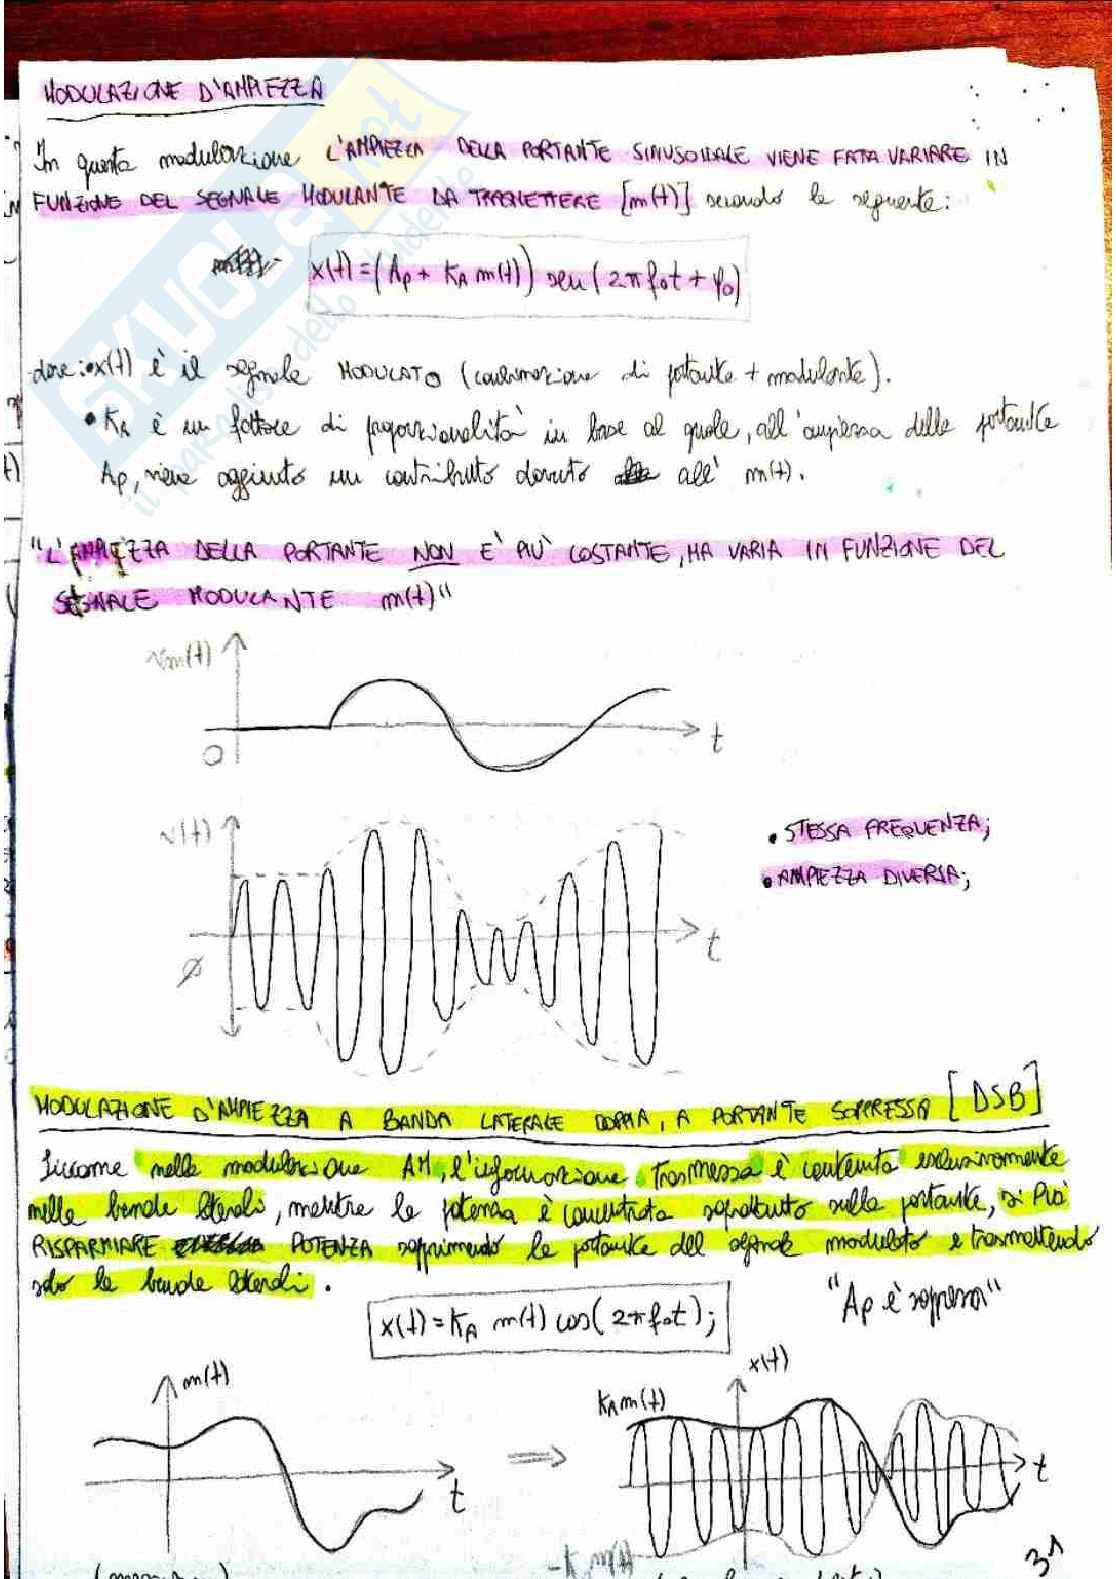 MODULAZIONE D'AMPIEZZA
In questa modulazione L'AMPIEZZA DELLA PORTANTE SINUSOIDALE VIENE FATA VARIARE IN
FUNZIONE DEL SEGNALE MODULANTE DA TRASMETTERE [m(t)] secondo la seguente:
x(t) = (Ap + KA m(t)) sen (2π f0t + φ0)
dove: • x(t) è il segnale MODULATO (combinazione di portante + modulante).
• KA è un fattore di proporzionalità in base al quale, all'ampiezza della portante
Ap, viene aggiunto un contributo dovuto all' m(t).
"L'AMPIEZZA DELLA PORTANTE NON E' PIU' COSTANTE, MA VARIA IN FUNZIONE DEL
SEGNALE MODULANTE m(t)"
vm(t)
0
t
v(t)
• STESSA FREQUENZA;
• AMPIEZZA DIVERSA;
t
0
MODULAZIONE D'AMPIEZZA A BANDA LATERALE DOPPIA, A PORTANTE SOPPRESSA [DSB]
Siccome nella modulazione AM, l'informazione trasmessa è contenuta esclusivamente
nelle bande laterali, mentre la potenza è concentrata soprattutto sulla portante, si PUÒ
RISPARMIARE POTENZA sopprimendo la portante del segnale modulato e trasmettendo
solo le bande laterali.
x(t) = KA m(t) cos(2π f0t);
"Ap è soppressa"
m(t)
t
⇒
x(t)
KA m(t)
t
-K m(t)
31
SKUOLA.net
il paradiso dello studente